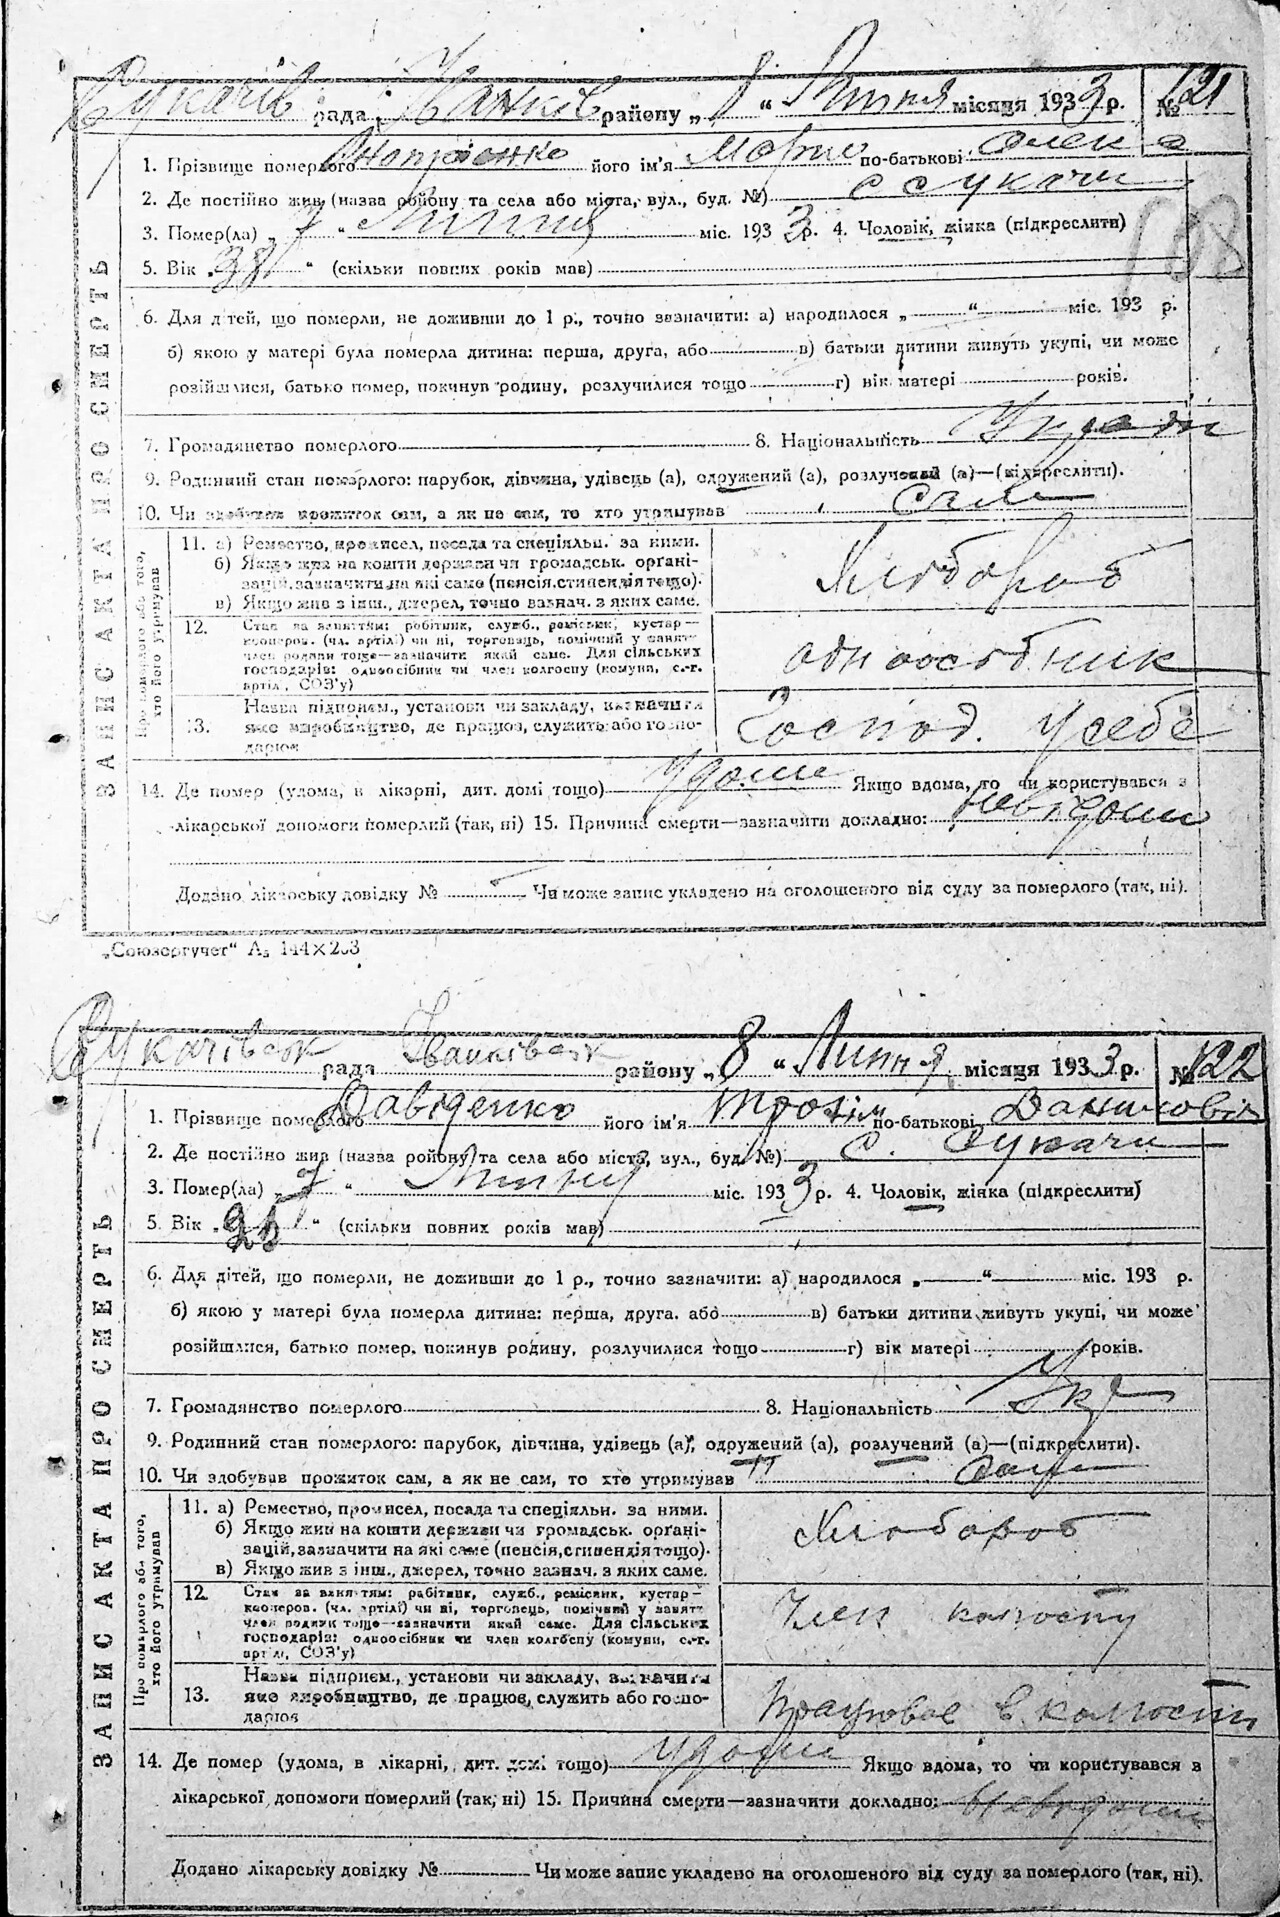 Сукачів рада Іванків району „ 8 “ Липня місяця 1933 р. № 121
1. Прізвище померлого його ім'я по-батькові
2. Де постійно жив (назва району та села або міста, вул., буд. №) с Сукачи
3. Помер(ла) „ 7 “ Липня міс. 1933 р. 4. Чоловік, жінка (підкреслити)
5. Вік „ 38 “ (скільки повних років мав)
198
6. Для дітей, що померли, не доживши до 1 р., точно зазначити: а) народилося „ “ міс. 193 р.
б) якою у матері була померла дитина: перша, друга, або в) батьки дитини живуть укупі, чи може
розійшлися, батько помер, покинув родину, розлучилися тощо г) вік матері років.
7. Громадянство померлого 8. Національність
9. Родинний стан померлого: парубок, дівчина, удівець (а), одружений (а), розлучений (а)—(підкреслити).
10. Чи здобував прожиток сам, а як не сам, то хто утримував
ЗАПИС АКТА ПРО СМЕРТЬ
Про померлого або того, хто його утримував
11. а) Ремество, промисел, посада та спеціяльн. за ними.
б) Якщо жив на кошти держави чи громадськ. орґані-
зацій, зазначити на які саме (пенсія, стипендія тощо).
в) Якщо жив з інш., джерел, точно зазнач. з яких саме.
Хлібороб
12. Стан за заняттям: робітник, служб., ремісник, кустар—
кооперов. (чл. артілі) чи ні, торговець, помічний у занятт.
член родини тощо—зазначити який саме. Для сільських
господарів: одноосібник чи член колгоспу (комуни, с.-г.
артілі, СОЗ'у)
одноосібник
13. Назва підприєм., установи чи закладу, визначити
яке виробництво, де працює, служить або госпо-
дарює
Господ. у себе
14. Де помер (удома, в лікарні, дит. домі тощо) удоме Якщо вдома, то чи користувався з
лікарської допомоги померлий (так, ні) 15. Причина смерти—зазначити докладно: невідоми
Додано лікарську довідку № Чи може запис укладено на оголошеного від суду за померлого (так, ні).
„Союзоргучет“ А₅ 144×203
Сукачівськ рада Іванківськ району „ 8 “ Липня місяця 1933 р. № 122
1. Прізвище померлого Давіденко його ім'я Трохім по-батькові Данилович
2. Де постійно жив (назва району та села або міста, вул., буд. №) с. Сукачи
3. Помер(ла) „ 7 “ Липня міс. 1933 р. 4. Чоловік, жінка (підкреслити)
5. Вік „ “ (скільки повних років мав)
6. Для дітей, що померли, не доживши до 1 р., точно зазначити: а) народилося „ “ міс. 193 р.
б) якою у матері була померла дитина: перша, друга, або в) батьки дитини живуть укупі, чи може
розійшлися, батько помер, покинув родину, розлучилися тощо г) вік матері років.
7. Громадянство померлого 8. Національність Укр
9. Родинний стан померлого: парубок, дівчина, удівець (а), одружений (а), розлучений (а)—(підкреслити).
10. Чи здобував прожиток сам, а як не сам, то хто утримував
ЗАПИС АКТА ПРО СМЕРТЬ
Про померлого або того, хто його утримував
11. а) Ремество, промисел, посада та спеціяльн. за ними.
б) Якщо жив на кошти держави чи громадськ. орґані-
зацій, зазначити на які саме (пенсія, стипендія тощо).
в) Якщо жив з інш., джерел, точно зазнач. з яких саме.
Хлібороб
12. Стан за заняттям: робітник, служб., ремісник, кустар—
кооперов. (чл. артілі) чи ні, торговець, помічний у занятт.
член родини тощо—зазначити який саме. Для сільських
господарів: одноосібник чи член колгоспу (комуни, с.-г.
артілі, СОЗ'у)
Член колгоспу
13. Назва підприєм., установи чи закладу, визначити
яке виробництво, де працює, служить або госпо-
дарює
Працював в колгоспі
14. Де помер (удома, в лікарні, дит. домі тощо) удоми Якщо вдома, то чи користувався з
лікарської допомоги померлий (так, ні) 15. Причина смерти—зазначити докладно: невідоми
Додано лікарську довідку № Чи може запис укладено на оголошеного від суду за померлого (так, ні).